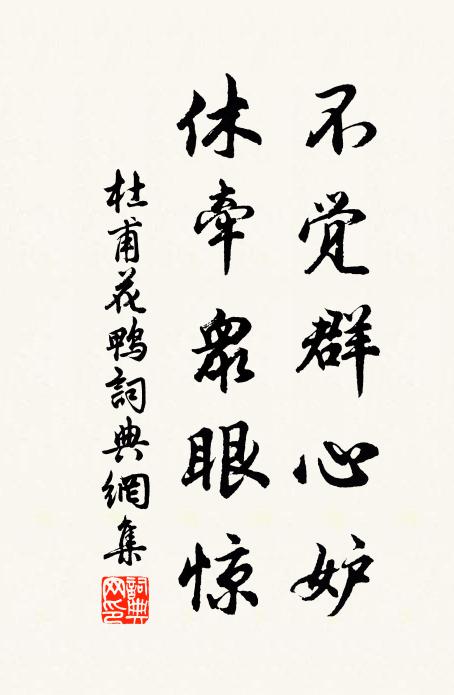 不觉群心妒
休牵眾眼惊
杜甫花鸭詞典網集
詞典网印